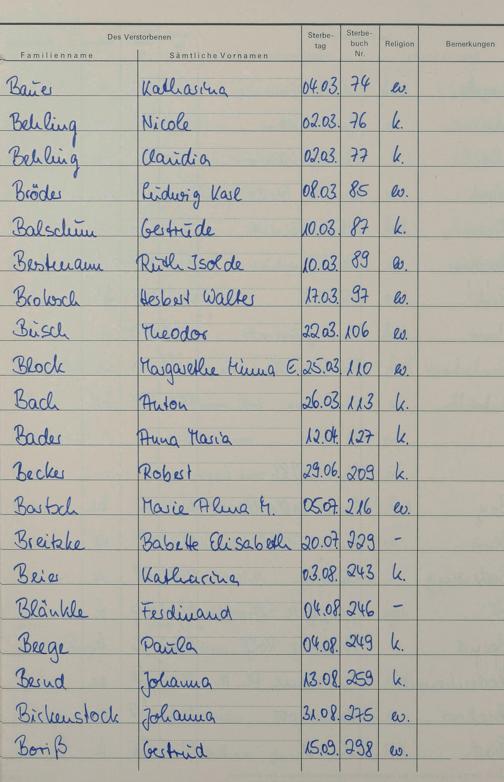 Des Verstorbenen Sterbe- Sterbe- Religion Bemerkungen
tag buch
Familienname Sämtliche Vornamen Nr.
Bauer Katharina 04.03. 74 ev.
Behling Nicole 02.03. 76 k.
Behling Claudia 02.03. 77 k.
Bröder Ludwig Karl 08.03 85 ev.
Balschun Gertrude 10.03. 87 k.
Bestmann Ruth Isolde 10.03. 89 ev.
Broksch Herbert Walter 17.03. 97 ev.
Busch Theodor 22.03. 106 ev.
Block Margarethe Minna E. 25.03. 110 ev.
Bach Anton 26.03. 113 k.
Bader Anna Maria 12.04. 127 k.
Becker Robert 29.06. 209 k.
Bartsch Marie Alma M. 05.07. 216 ev.
Breitzke Babette Elisabeth 20.07. 229 -
Beier Katharina 03.08. 243 k.
Blänkle Ferdinand 04.08. 246 -
Beege Paula 04.08. 249 k.
Bernd Johanna 13.08. 259 k.
Birkenstock Johanna 31.08. 275 ev.
Boriß Gertrud 15.09. 298 ev.